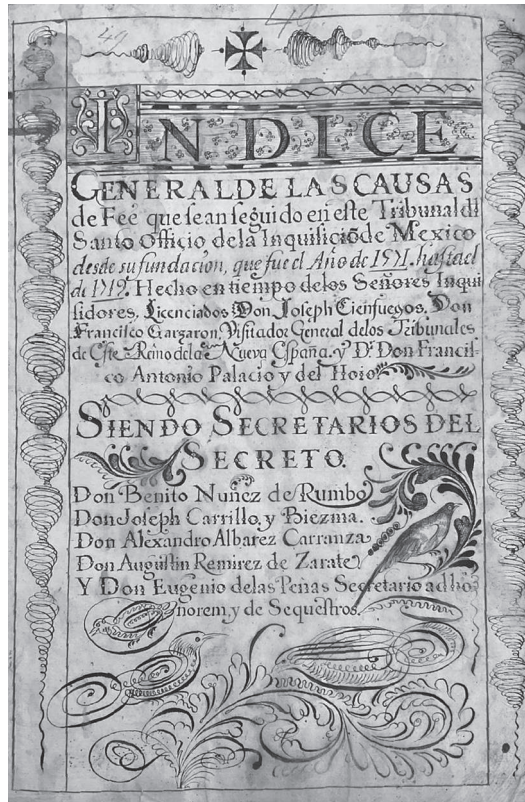 49
49
INDICE
GENERAL DE LAS CAUSAS
de Feé que sean seguido en este Tribunal dl
Santo Officio dela Inquisiciõ de Mexico
desde su fundacion, que fue el Año de 1571. hasta el
de 1719. Hecho en tiempo delos Señores Inqui
sidores, Licenciados Don Joseph Cienfuegos, Don
Francisco Garzaron, Visitador General delos Tribunales
de Este Reino dela Nueva España. y Dr. Don Francis-
co Antonio Palacio y del Hoio.
SIENDO SECRETARIOS DEL
SECRETO.
Don Benito Nuñez de Rumbo
Don Joseph Carrillo, y Biezma.
Don Alexandro Albarez Carranza
Don Augustin Remirez de Zarate
Y Don Eugenio delas Peñas Secretario ad ho
norem, y de Sequestros.